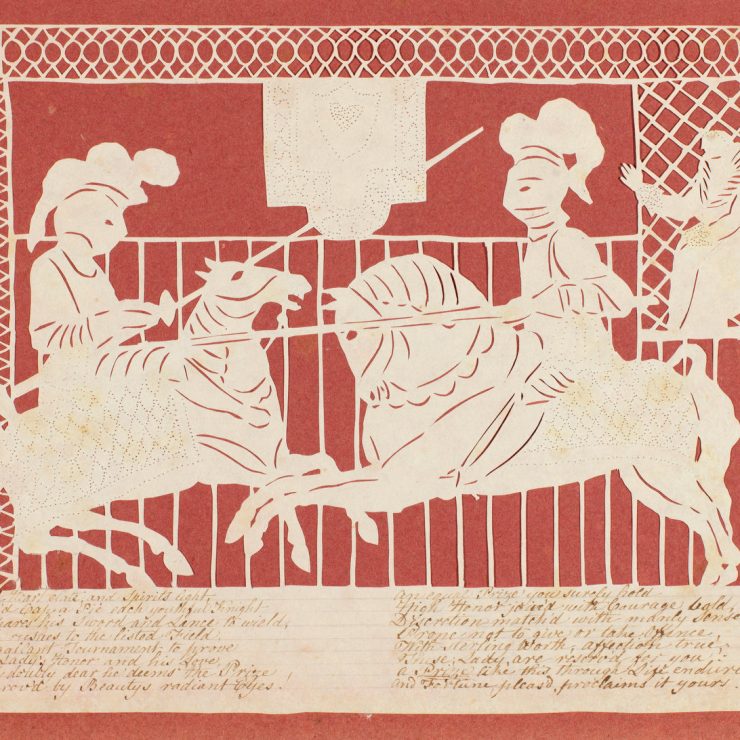 and Spirits light
each youthful Knight
his Sword and Lance to wield,
to the listed Field,
Tournament, to prove
Lady's Honor and his Love
doubly dear he deems the Prize
by Beauty's radiant Eyes.
An equal Prize you surely hold
High Honor join'd with Courage bold,
Discretion match'd with manly Sense
Prone not to give, or take offence,
With sterling Worth, affection true
Lady, are reserv'd for you
a Prize like this through Life endures
and Fortune pleas'd proclaims it yours.